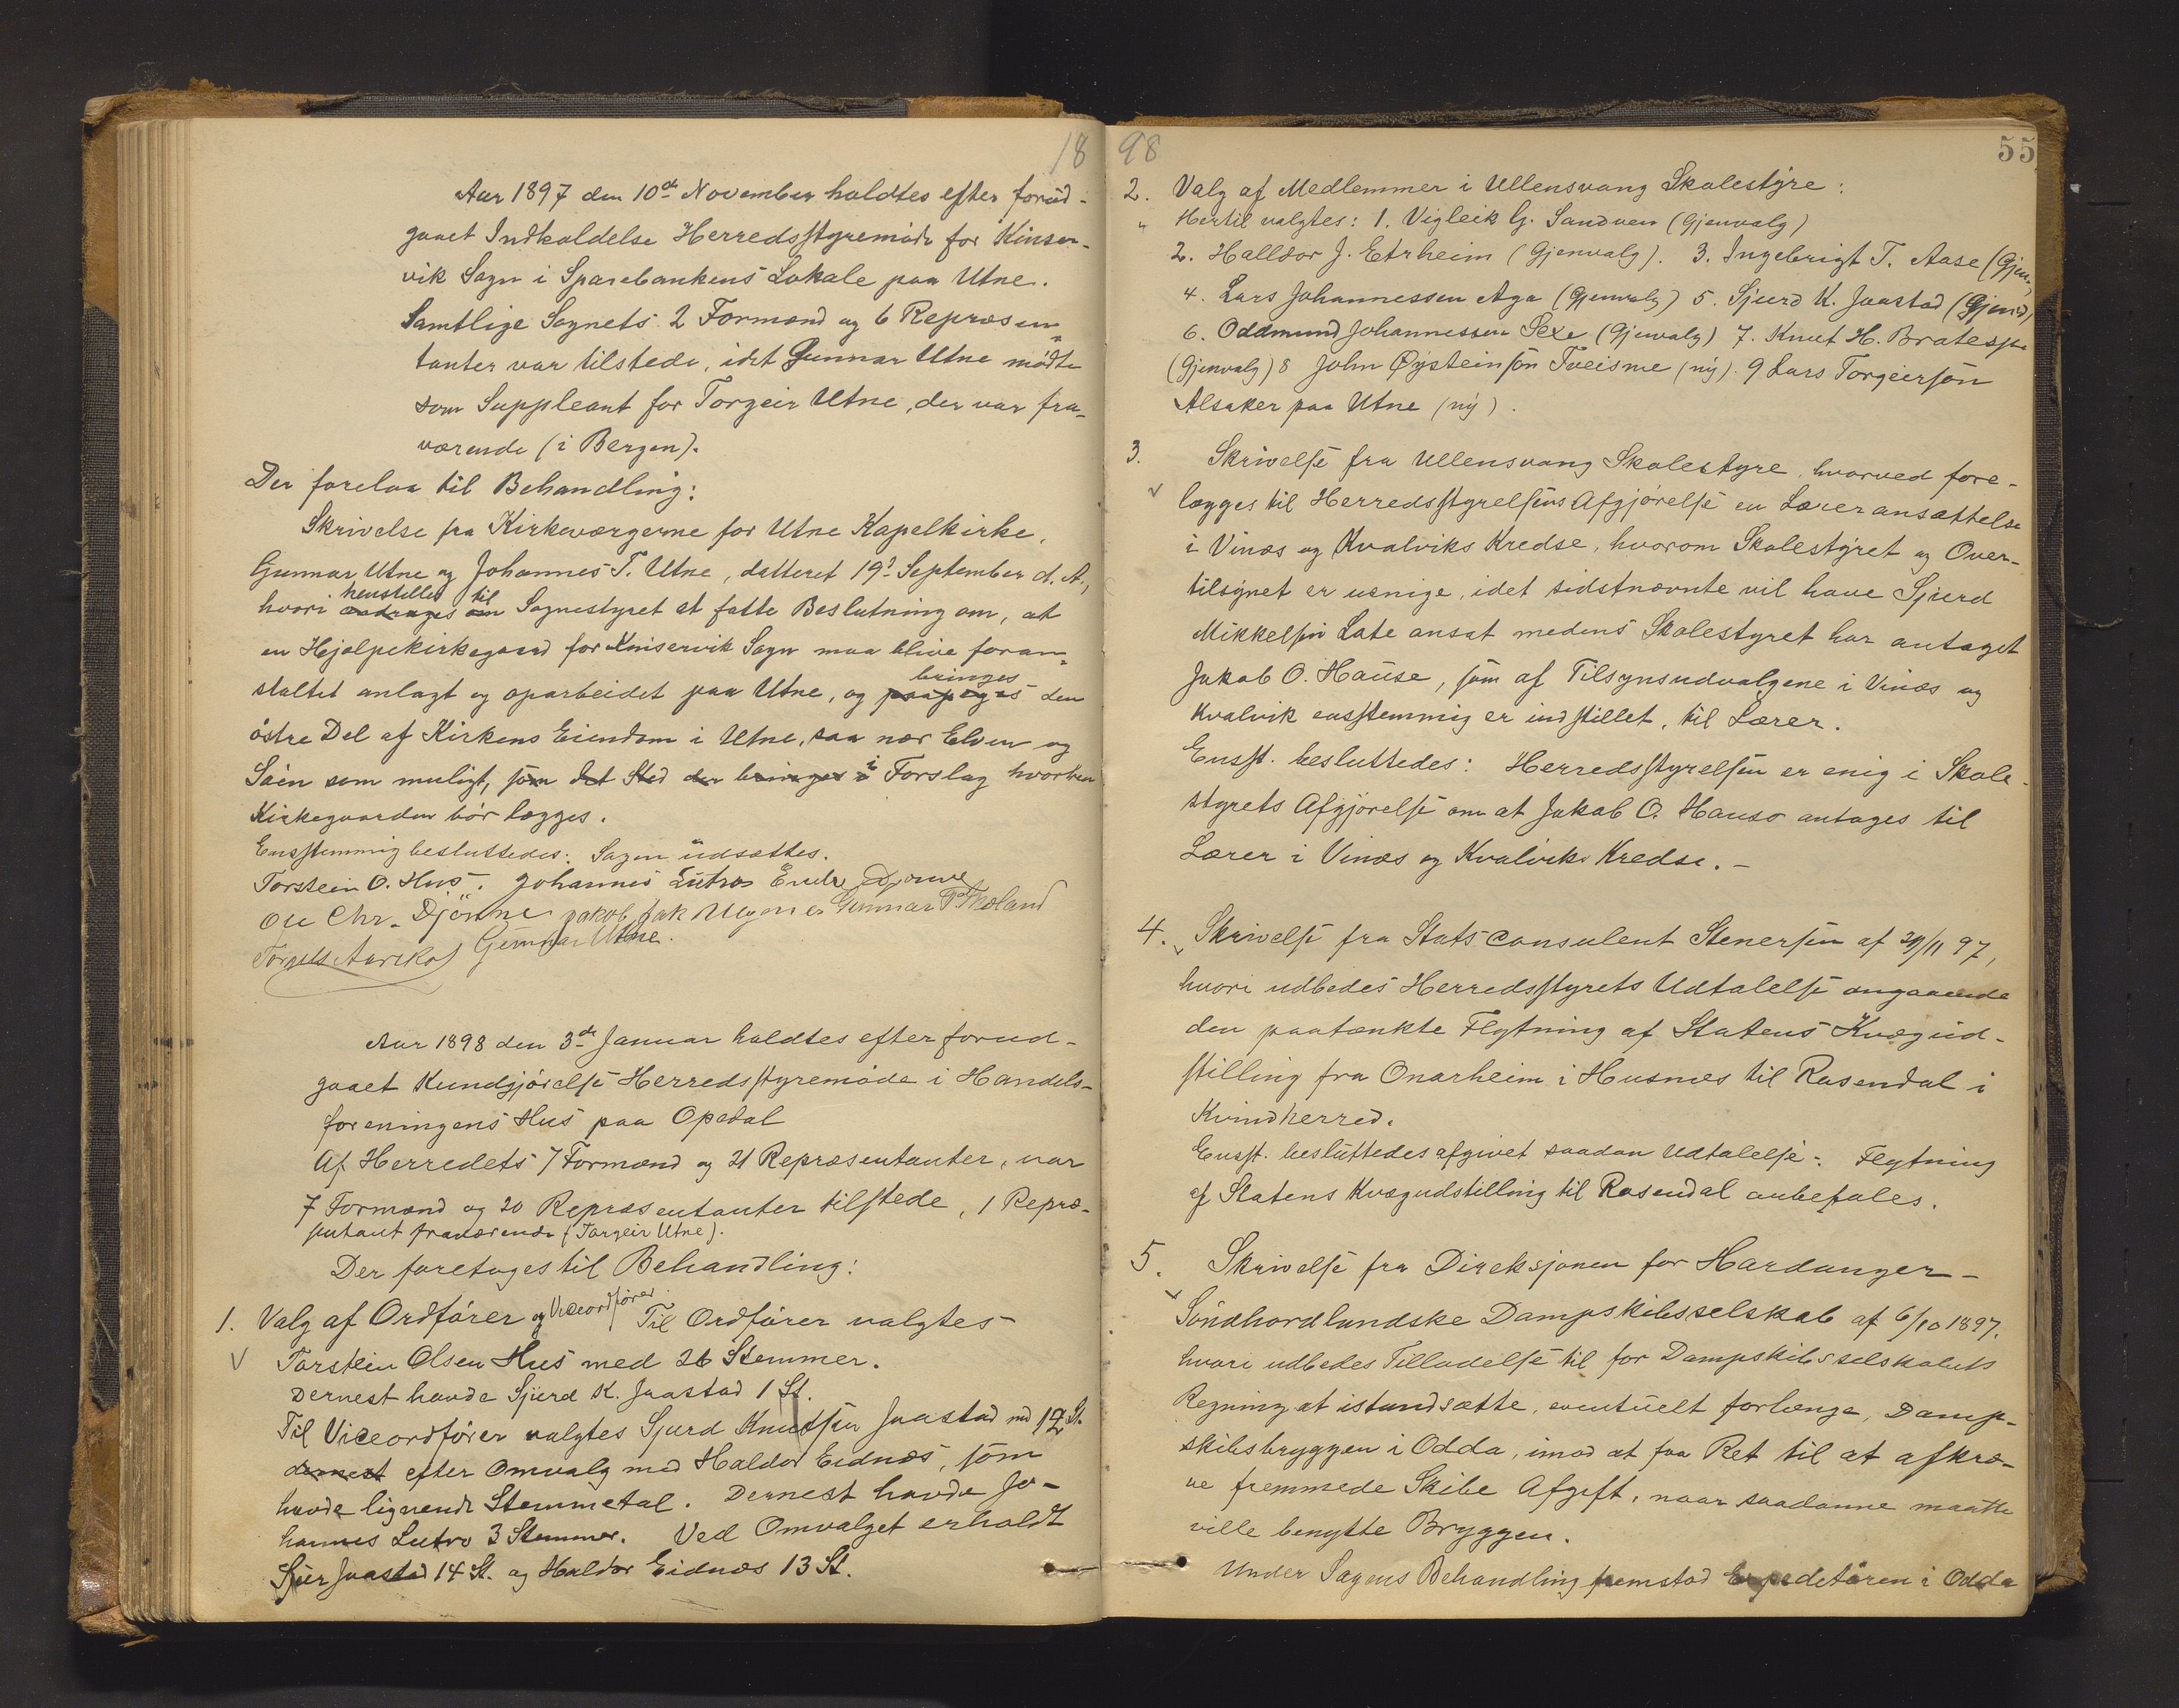 18
Aar 1897 den 10de November holdtes efter forud-
gaaet Indkaldelse Herredsstyremøde for Kinser-
vik Sogn i Sparebankens Lokale paa Utne.
Samtlige Sognets 2 Formænd og 6 Repræsen-
tanter var tilstede, idet Gunnar Utne mødte
som Suppleant for Torgeir Utne, der var fra-
værende (i Bergen).
Der forelaa til Behandling:
Skrivelse fra Kirkeværgerne for Utne Kapelkirke,
Gunnar Utne og Johannes T. Utne, datteret 19de September d. A.,
henstilles til
hvori andrages om Sognestyret at fatte Beslutning om, at
en Hjælpekirkegaard for Kinservik Sogn maa blive foran-
bringes
staltet anlagt og oparbeidet paa Utne, og paapeges den
østre Del af Kirkens Eiendom i Utne, saa nær Elven og
Søen som muligt, som det Sted der bringes i i Forslag hvorhen
Kirkegaarden bør lægges.
Ensstemmig besluttedes: Sagen udsættes.
Torstein O. Hus. Johannes Lutro Endre Djonne
Ole Chr. Djønne Jakob Jak Gunnar T. Skoland
Torgils Aarekol Gunnar Utne.
Aar 1898 den 3de Januar holdtes efter forud-
gaaet Kundgjørelse Herredsstyremøde i Handels-
foreningens Hus paa Opedal
Af Herredets 7 Formænd og 21 Repræsentanter, var
7 Formænd og 20 Repræsentanter tilstede, 1 Repræ-
sentant fraværende (Torgeir Utne).
Der foretoges til Behandling:
1. Valg af Ordfører og Viceordfører. Til Ordfører valgtes
V Torstein Olsen Hus med 26 Stemmer.
Dernest havde Sjurd K. Jaastad 1 St.
Til Viceordfører valgtes Sjurd Knudsen Jaastad md 12 St.
dernest efter Omvalg med Haldor Eidnæs, som
havde lignende Stemmetal. Dernest havde Jo-
hannes Lutro 3 Stemmer. Ved Omvalget erholdt
Sjur Jaastad 14 St. og Haldor Eidnæs 13 St.
98
55
2. Valg af Medlemmer i Ullensvang Skolestyre:
Hertil valgtes: 1. Vigleik G. Sandven (Gjenvalg)
2. Halldor J. Etrheim (Gjenvalg). 3. Ingebrigt T. Aase (Gjen.)
4. Lars Johannessen Aga (Gjenvalg) 5. Sjurd K. Jaastad (Gjenv.),
6. Oddmund Johannessen Sexe (Gjenvalg) 7. Knut H. Bratespe
(Gjenvalg) 8 John Øysteinsøn Tveisme (ny). 9 Lars Torgeirsøn
Alsaker paa Utne (ny).
3. Skrivelse fra Ullensvang Skolestyre, hvorved fore-
V lægges til Herredsstyrelsens Afgjørelse en Læreransættelse
i Vinæs og Kvalviks Kredse, hvorom Skolestyret og Over-
tilsynet er uenige, idet sidstnævnte vil have Sjurd
Mikkelsen Lote ansat medens Skolestyret har antaget
Jakob O. Hause, som af Tilsynsudvalgene i Vinæs og
Kvalvik ensstemmig er indstillet, til Lærer.
Ensst. besluttedes: Herredsstyrelsen er enig i Skole-
styrets Afgjørelse om at Jakob O. Hauso antages til
Lærer i Vinæs og Kvalviks Kredse. –
4. Skrivelse fra Statsconsulent Stenersen af 29/11 97,
hvori udbedes Herredsstyrets Udtalelse angaaende
den paatænkte Flytning af Statens Kvægud-
stilling fra Onarheim i Husnes til Rosendal i
Kvindherred.
Ensst. besluttedes afgivet saadan Udtalelse: Flytning
af Statens Kvægudstilling til Rosendal anbefales.
5. Skrivelse fra Direksjonen for Hardanger-
V Søndhordlandske Dampskibsselskab af 6/10 1897.
hvori udbedes Tilladelse til for Dampskibsselskabets
Regning at istandsætte, eventuelt forlænge, Damp-
skibsbryggen i Odda, imod at faa Ret til at afkræ-
ve fremmede Skibe Afgift, naar saadanne maatte
ville benytte Bryggen.
Under Sagens Behandling fremstod Expeditøren i Odda